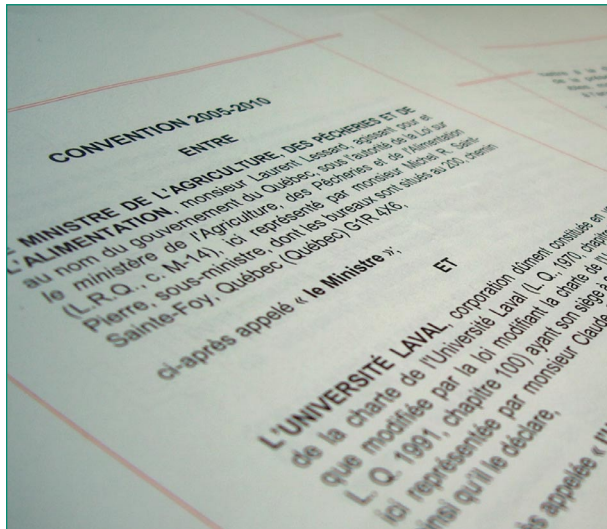 CONVENTION 2005-2010
ENTRE
MINISTRE DE L'AGRICULTURE, DES PÊCHERIES ET DE
L'ALIMENTATION, monsieur Laurent Lessard, agissant pour et
au nom du gouvernement du Québec, sous l'autorité de la Loi sur
le ministère de l'Agriculture, des Pêcheries et de l'Alimentation
(L.R.Q., c. M-14), ici représenté par monsieur Michel R. Saint-
Pierre, sous-ministre, dont les bureaux sont situés au 200, chemin
Sainte-Foy, Québec (Québec) G1R 4X6,
ci-après appelé « le Ministre »;
ET
L'UNIVERSITÉ LAVAL, corporation dûment constituée en
de la charte de l'Université Laval (L. Q., 1970, chapitre
que modifiée par la loi modifiant la charte de
L. Q. 1991, chapitre 100) ayant son siège à
ici représentée par monsieur Claude
qu'il le déclare,
appelée «